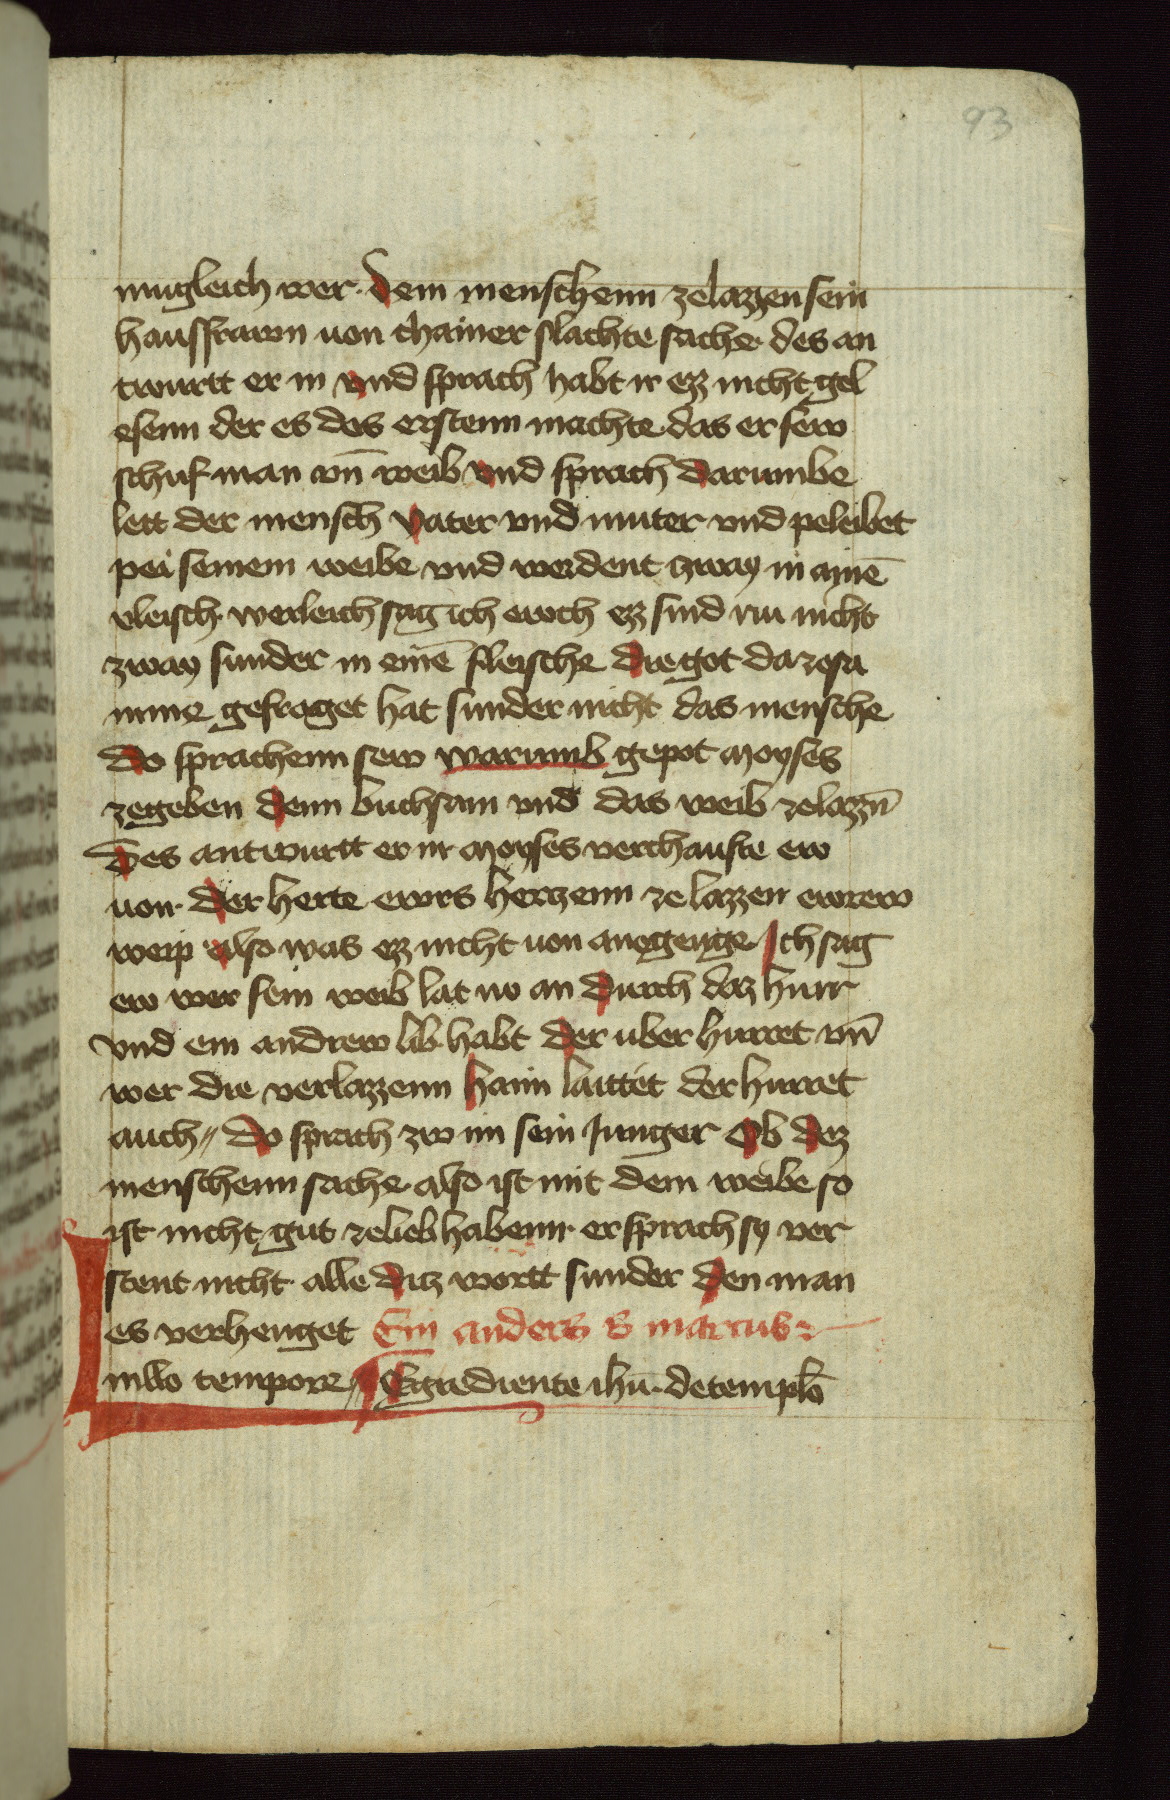 93
mugleich wer. Dem menschenn zelazzen sein
hausfrawn uon chainer slachte sache des an
twurtt er in vnd sprach habt ir ez nicht gel
esenn der es des erstenn machte das er sew
schuf man vn̄ weib vnd sprach darumbe
lett der mensch vater vnd muter vnd peleibet
pei seinem weibe vnd werdent zway in aynē
vleisch. werleich sag ich ewch ez sind nu nicht
zway sunder in einē fleische die got da zesa
mme gefroget hat sunder nicht das mensche
do sprachenn sew warumb gepot moyses
zegeben denn buchsam vnd das weib zelazzn̄
Des antwurtt er in moyses verchaufte ew
uon der herte ewrs herczenn ze lazzen ewrew
weip also was ez nicht uon anegenge Ich sag
ew wer sein weib lat no an durch daz hurr
vnd ein andrew lib habt der uber hurret vn̄
wer die verlazzenn haim laittet der hurret
auch // do sprach zw im sein Junger Ob dez
menschenn sache also ist mit dem weibe so
ist nicht gut zelieb habenn er sprach sy ver
stent nicht alle diz wortt sunder den man
es verhenget Ein anders S marcus
Inillo tempore // Egrediente ihū. de templō